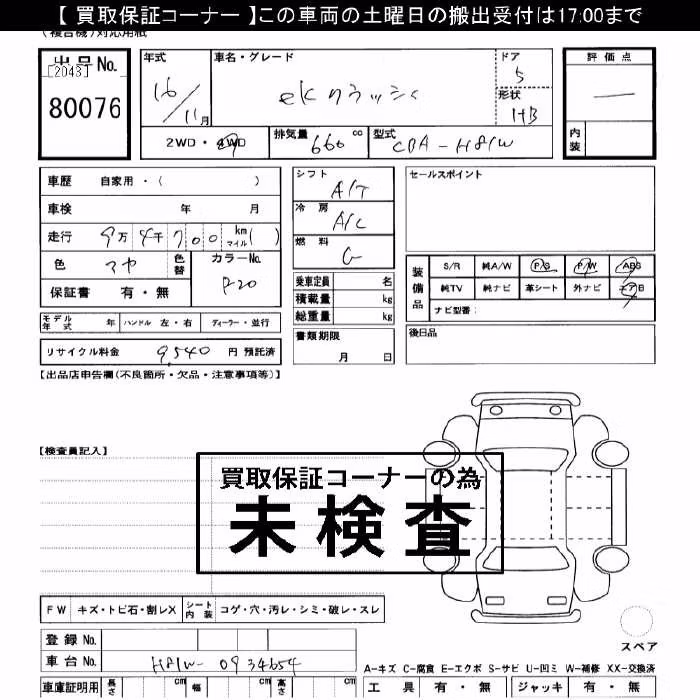 【 買取保証コーナー 】この車両の土曜日の搬出受付は17:00まで
(複合機)対応用紙
出品No.
[2043]
80076
年式
16/11月
車名・グレード
ekクラッシィ
ドア
5
形状
HB
2WD・4WD
排気量 660 cc
型式 CBA-H81W
評価点
—
内装
車歴 自家用・( )
車検 年 月
走行 9万4千700 km マイル( )
色
色替
カラーNo.
P20
保証書 有・無
モデル年式 年 ハンドル 左・右 ディーラー・並行
リサイクル料金 9,540 円 預託済
シフト
A/T
冷房
A/C
燃料
G
乗車定員 名
積載量 kg
総重量 kg
書類期限
月 日
セールスポイント
装備品
S/R 純A/W P/S P/W ABS
純TV 純ナビ 革シート 外ナビ エアB
ナビ型番:
後日品
【出品店申告欄(不良箇所・欠品・注意事項等)】
【検査員記入】
買取保証コーナーの為
未検査
FW キズ・トビ石・割レX シート内装 コゲ・穴・汚レ・シミ・破レ・スレ
登録No.
車台No. H81W-0934654
スペア
A-キズ C-腐食 E-エクボ S-サビ U-凹ミ W-補修 XX-交換済
車庫証明用 長さ cm 幅 cm 高さ cm
工具 有・無 ジャッキ 有・無